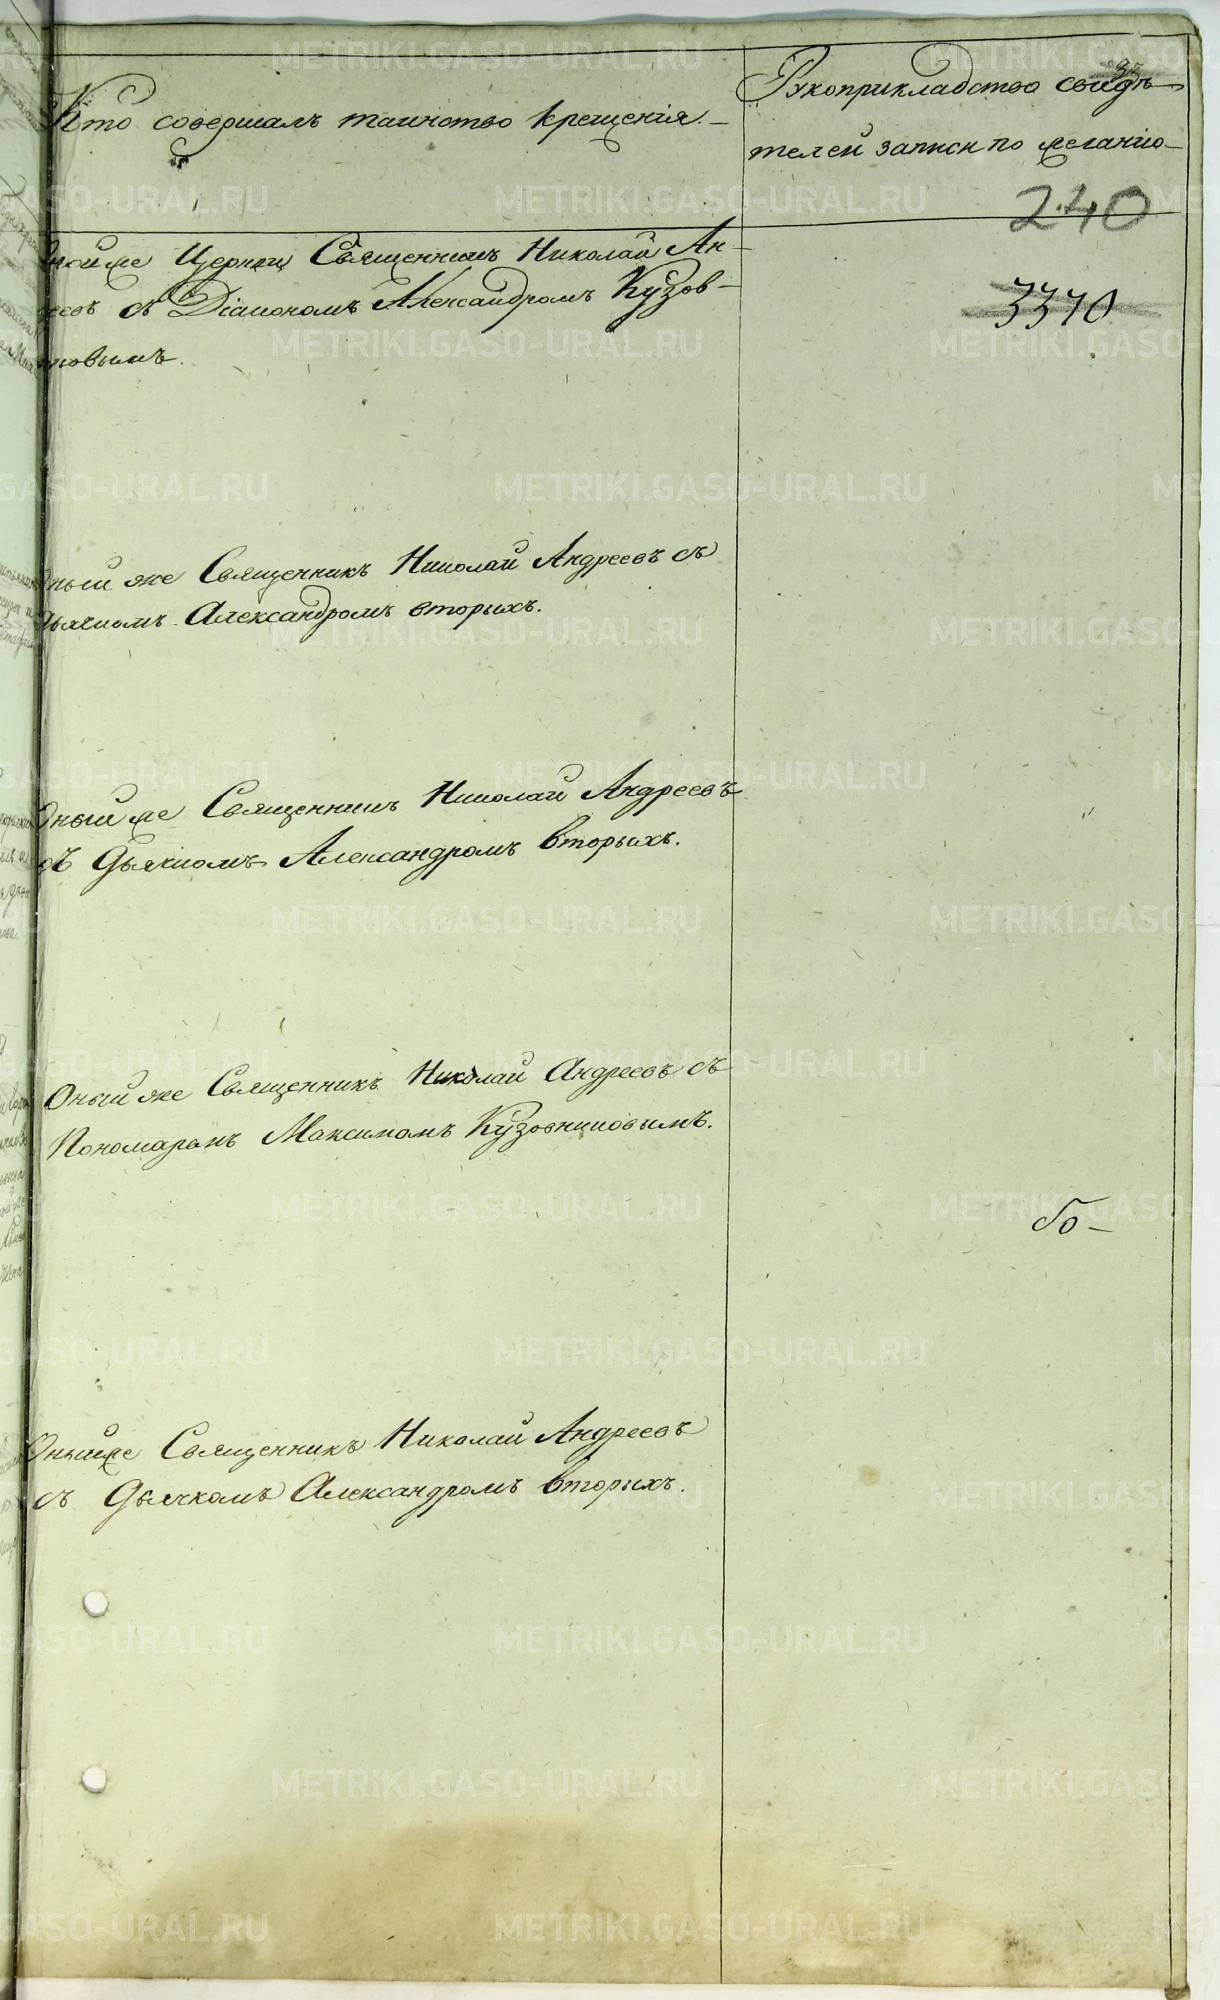 Кто совершалъ таинство крещенія.
Рукоприкладство свидѣ-
телей записи по желанію
240
3370
Церкви Священникъ Николай Ан-
съ Діакономъ Александромъ Кузов-
новымъ.
же Священникъ Николай Андреевъ съ
Дьячкомъ Александромъ вторыхъ.
Оный же Священникъ Николай Андреевъ
съ Дьячкомъ Александромъ Вторыхъ.
Оный же Священникъ Николай Андреевъ съ
Пономаремъ Максимомъ Кузовниковымъ.
бо-
Оный же Священникъ Николай Андреевъ
съ Дьячкомъ Александромъ Вторыхъ.
METRIKI.GASO-URAL.RU